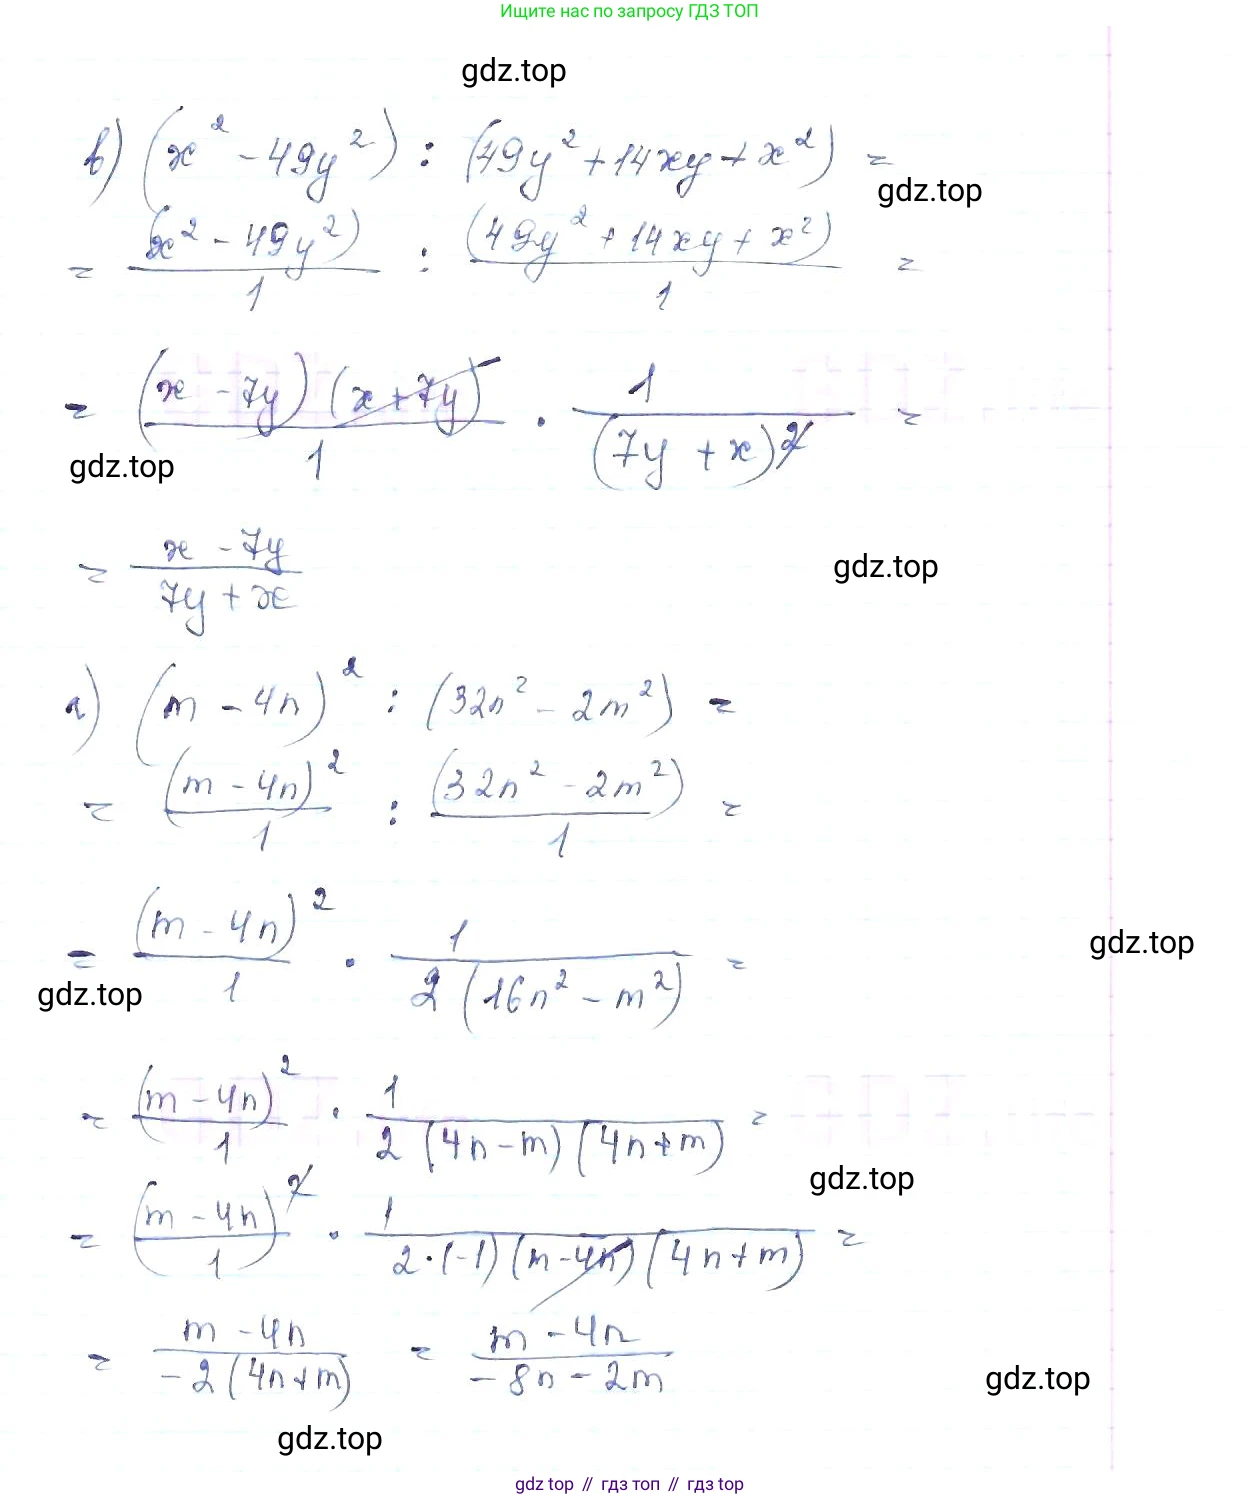 Ищите нас по запросу ГДЗ ТОП
gdz.top
в) (x² - 49y²) : (49y² + 14xy + x²) =
gdz.top
= (x² - 49y²)/1 : (49y² + 14xy + x²)/1 =
= (x - 7y)(x + 7y)/1 · 1/(7y + x)² =
gdz.top
= (x - 7y)/(7y + x)
gdz.top
г) (m - 4n)² : (32n² - 2m²) =
= (m - 4n)²/1 : (32n² - 2m²)/1 =
= (m - 4n)²/1 · 1/2(16n² - m²) =
gdz.top
gdz.top
= (m - 4n)²/1 · 1/2(4n - m)(4n + m) =
gdz.top
= (m - 4n)²/1 · 1/2·(-1)(m - 4n)(4n + m) =
= (m - 4n)/-2(4n + m) = (m - 4n)/(-8n - 2m)
gdz.top
gdz.top
gdz top // гдз топ // gdz top